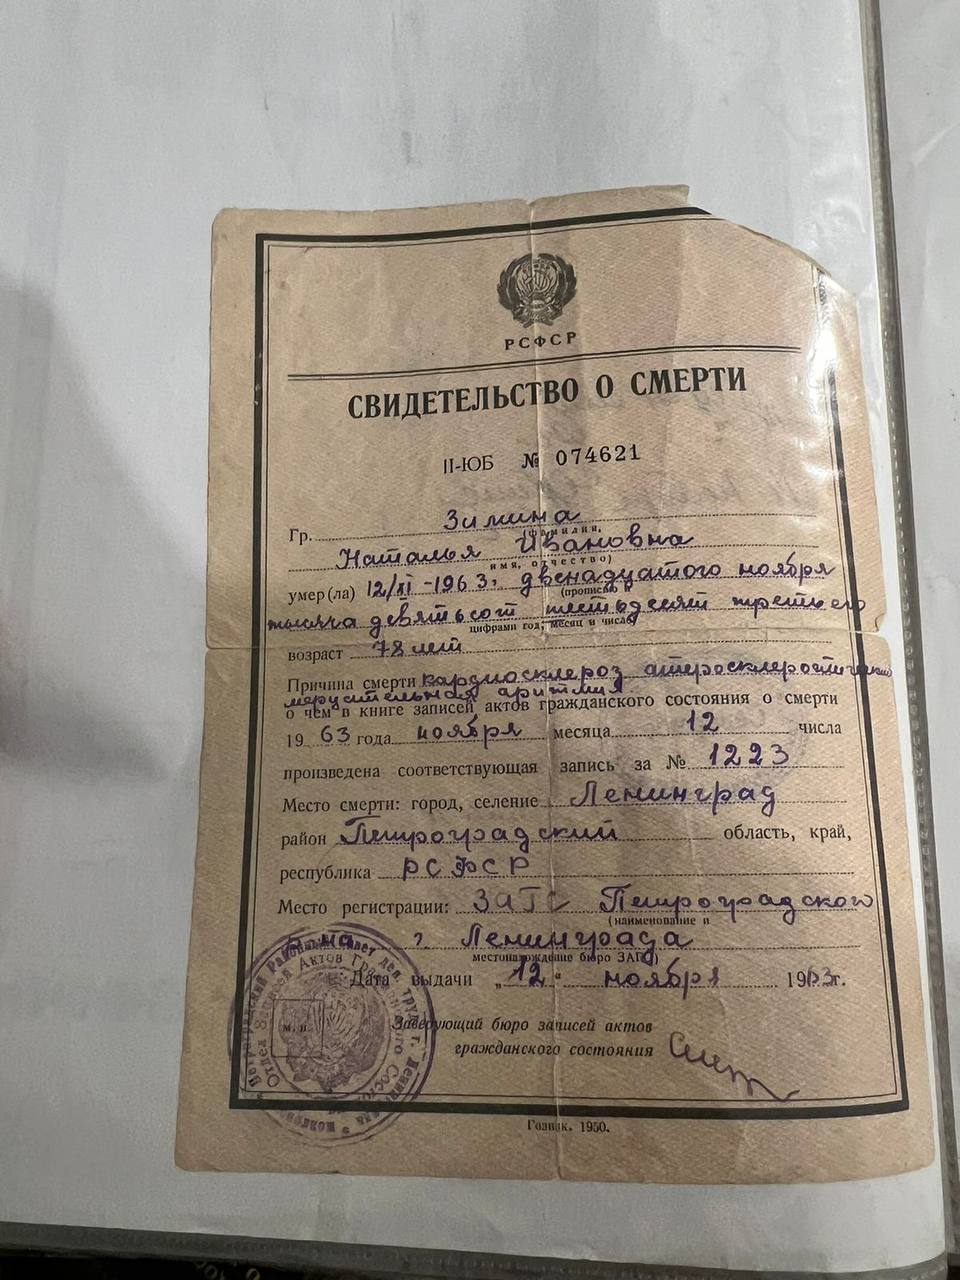 РСФСР
СВИДЕТЕЛЬСТВО О СМЕРТИ
II-ЮБ № 074621
Гр. Зимина
(фамилия,
Наталья Ивановна
имя, отчество)
умер(ла) 12/XI-1963г. двенадцатого ноября
(прописью и
тысяча девятьсот шестьдесят третьего
цифрами год, месяц и число)
возраст 78 лет
Причина смерти кардиосклероз атеросклеротический
мерцательная аритмия
о чём в книге записей актов гражданского состояния о смерти
19 63 года ноября месяца 12 числа
произведена соответствующая запись за № 1223
Место смерти: город, селение Ленинград
район Петроградский область, край,
республика РСФСР
Место регистрации: ЗАГС Петроградского
(наименование и
р-на г. Ленинграда
местонахождение бюро ЗАГС)
Дата выдачи „12“ ноября 1963г.
М. П.
Заведующий бюро записей актов
гражданского состояния
Гознак. 1950.